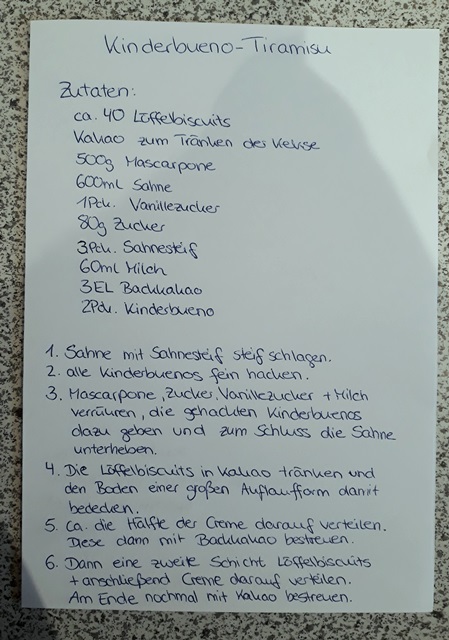 Kinderbueno-Tiramisu
Zutaten:
ca. 40 Löffelbiscuits
Kakao zum Tränken der Kekse
500g Mascarpone
600ml Sahne
1Pck. Vanillezucker
80g Zucker
3Pck. Sahnesteif
60ml Milch
3EL Backkakao
2Pck. Kinderbueno
1. Sahne mit Sahnesteif steif schlagen.
2. alle Kinderbuenos fein hacken.
3. Mascarpone, Zucker, Vanillezucker + Milch
verrühren, die gehackten Kinderbuenos
dazu geben und zum Schluss die Sahne
unterheben.
4. Die Löffelbiscuits in Kakao tränken und
den Boden einer großen Auflaufform damit
bedecken.
5. Ca. die Hälfte der Creme darauf verteilen.
Diese dann mit Backkakao bestreuen.
6. Dann eine zweite Schicht Löffelbiscuits
+ anschließend Creme darauf verteilen.
Am Ende nochmal mit Kakao bestreuen.